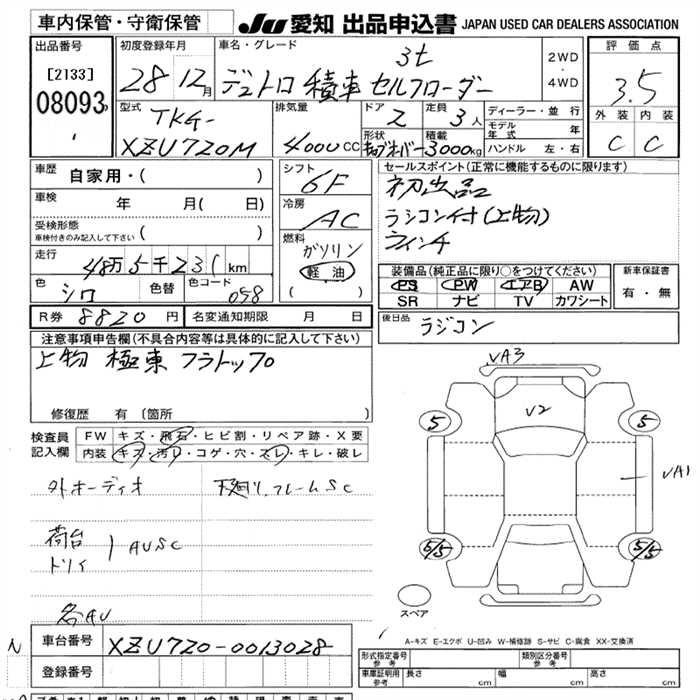 車内保管・守衛保管
JU 愛知 出品申込書 JAPAN USED CAR DEALERS ASSOCIATION
出品番号
[2133]
08093
初度登録年月
28 12月
車名・グレード
3t
デュトロ 積車 セルフローダー
2WD
・
4WD
評価点
3.5
外装 内装
C C
型式
TKG-
XZU720M
排気量
4000 CC
ドア
2
定員
3人
形状
積載
3000kg
ディーラー・並 行
モデル年式 年
ハンドル 左・右
車歴
自家用・( )
車検
年 月( 日)
受検形態
車検付きのみ記入して下さい ( )
走行
48万5千231km
色
シロ
色替
色コード
058
シフト
6F
冷房
AC
燃料
ガソリン
軽 油
( )
セールスポイント(正常に機能するものに限ります)
初出品
ラジコン付(上物)
ウインチ
装備品(純正品に限り○をつけてください)
PS PW エアB AW
SR ナビ TV カワシート
新車保証書
有・無
R券 8820 円
名変通知期限 月 日
後日品
ラジコン
注意事項申告欄(不具合内容等は具体的に記入して下さい)
上物 極東 フラトップ
修復歴 有 〔箇所 〕
検査員
記入欄
FW キズ・飛石・ヒビ割・リペア跡・X要
内装 キズ・汚レ・コゲ・穴・スレ・キレ・破レ
外オーディオ
下廻リ、フレームSC
荷台
トリイ
AUSC
各AU
VA3
V2
5 5
VA1
5/5 5/5
スペア
A-キズ E-エクボ U-凹み W-補修跡 S-サビ C-腐食 XX-交換済
N
車台番号 XZU720-0013028
登録番号
形式指定番号
参考
類別区分番号
参考
車庫証明用
参考
長さ cm
幅 cm
高さ cm